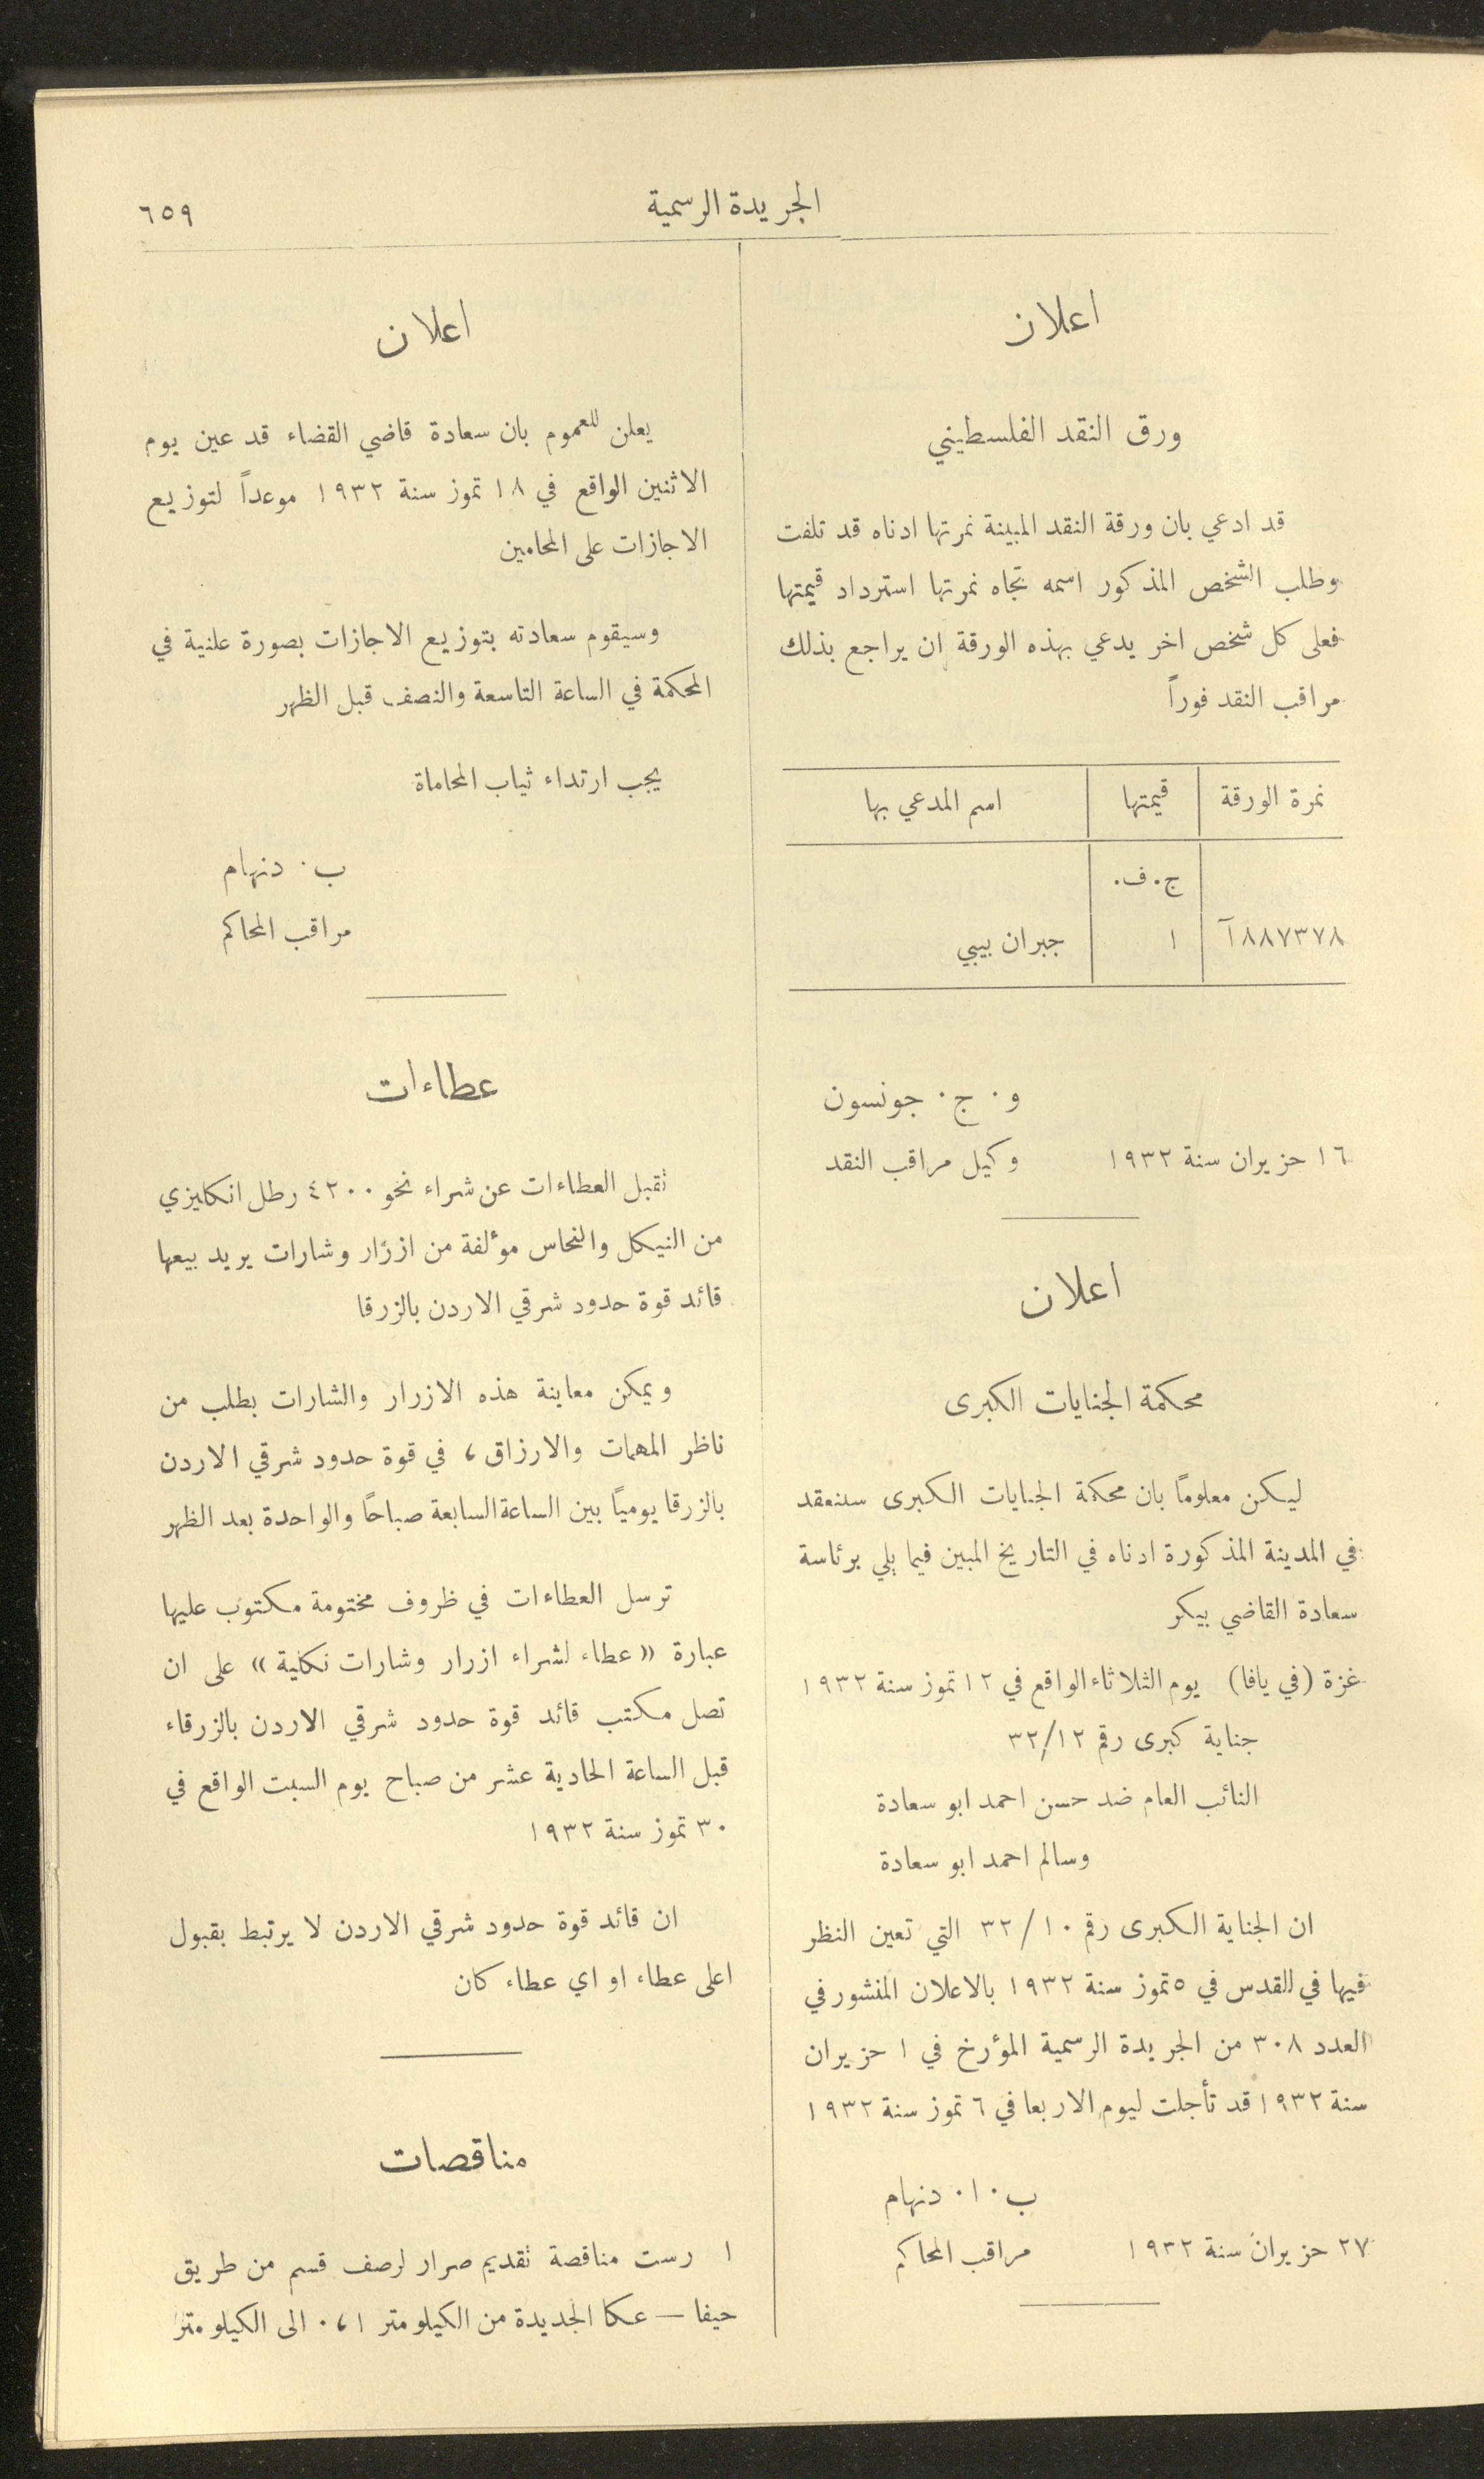 الجريدة الرسمية
٦٥٩
اعلان
ورق النقد الفلسطيني
قد ادعي بان ورقة النقد المبينة نمرتها ادناه قد تلفت
وطلب الشخص المذكور اسمه تجاه نمرتها استرداد قيمتها
فعلى كل شخص اخر يدعي بهذه الورقة ان يراجع بذلك
مراقب النقد فوراً
نمرة الورقة قيمتها اسم المدعي بها
ج. ف.
آ ٨٨٧٣٧٨ ١ جبران بيبي
و. ج. جونسون
١٦ حزيران سنة ١٩٣٢ وكيل مراقب النقد
اعلان
محكمة الجنايات الكبرى
ليكن معلوماً بان محكمة الجنايات الكبرى ستنعقد
في المدينة المذكورة ادناه في التاريخ المبين فيما يلي برئاسة
سعادة القاضي بيكر
غزة (في يافا) يوم الثلاثاء الواقع في ١٢ تموز سنة ١٩٣٢
جناية كبرى رقم ٣٢/١٢
النائب العام ضد حسن احمد ابو سعادة
وسالم احمد ابو سعادة
ان الجناية الكبرى رقم ٣٢/١٠ التي تعين النظر
فيها في القدس في ٥ تموز سنة ١٩٣٢ بالاعلان المنشور في
العدد ٣٠٨ من الجريدة الرسمية المؤرخ في ١ حزيران
سنة ١٩٣٢ قد تأجلت ليوم الاربعا في ٦ تموز سنة ١٩٣٢
ب. ا. دنهام
٢٧ حزيران سنة ١٩٣٢ مراقب المحاكم
اعلان
يعلن للعموم بان سعادة قاضي القضاء قد عين يوم
الاثنين الواقع في ١٨ تموز سنة ١٩٣٢ موعداً لتوزيع
الاجازات على المحامين
وسيقوم سعادته بتوزيع الاجازات بصورة علنية في
المحكمة في الساعة التاسعة والنصف قبل الظهر
يجب ارتداء ثياب المحاماة
ب. دنهام
مراقب المحاكم
عطاءات
تقبل العطاءات عن شراء نحو ٤٢٠٠ رطل انكليزي
من النيكل والنحاس مؤلفة من ازرار وشارات يريد بيعها
قائد قوة حدود شرقي الاردن بالزرقا
ويمكن معاينة هذه الازرار والشارات بطلب من
ناظر المهمات والارزاق، في قوة حدود شرقي الاردن
بالزرقا يومياً بين الساعة السابعة صباحاً والواحدة بعد الظهر
ترسل العطاءات في ظروف مختومة مكتوب عليها
عبارة «عطاء لشراء ازرار وشارات نكلية» على ان
تصل مكتب قائد قوة حدود شرقي الاردن بالزرقاء
قبل الساعة الحادية عشر من صباح يوم السبت الواقع في
٣٠ تموز سنة ١٩٣٢
ان قائد قوة حدود شرقي الاردن لا يرتبط بقبول
اعلى عطاء او اي عطاء كان
مناقصات
١ رست مناقصة تقديم صرار لرصف قسم من طريق
حيفا — عكا الجديدة من الكيلو متر ٠،١ الى الكيلو متر